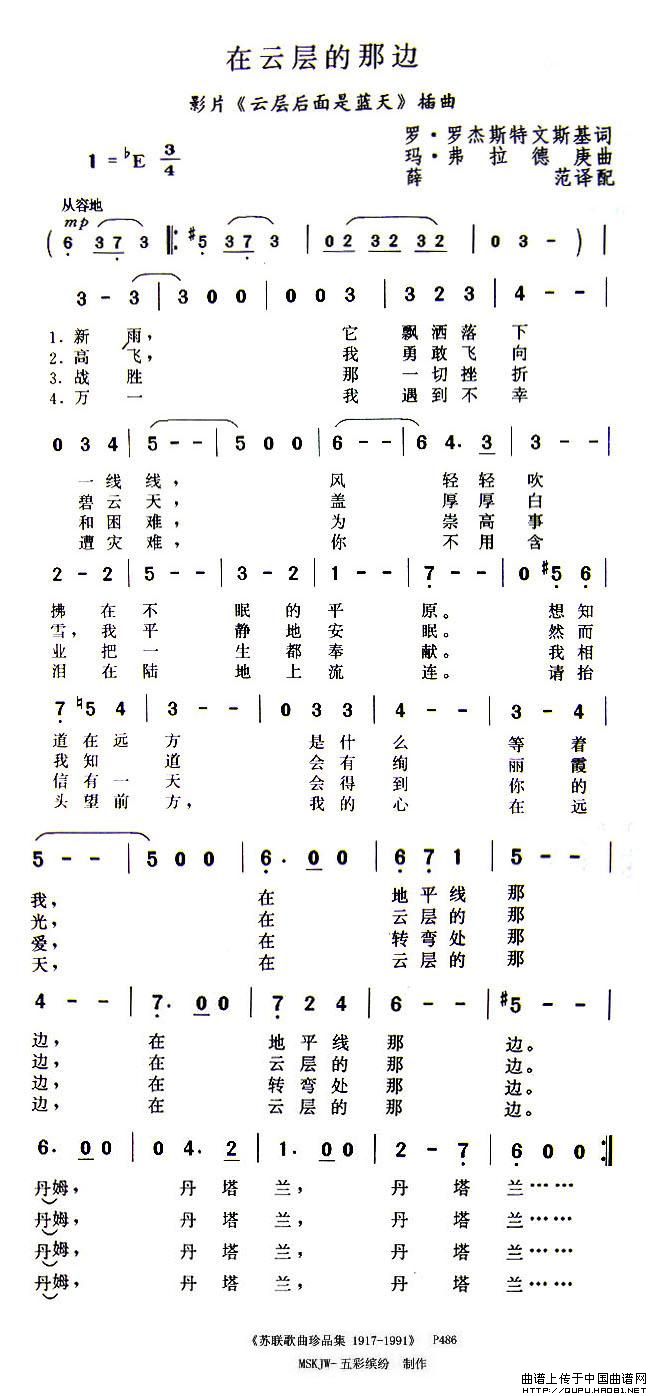 在云层的那边
影片《云层后面是蓝天》插曲
1 = ♭E 3/4
罗·罗杰斯特文斯基词
玛·弗拉德庚曲
薛范译配
从容地
mp
( 6 3 7 3 |: #5 3 7 3 | 0 2 3 2 3 2 | 0 3 - ) |
3 - 3 | 3 0 0 | 0 0 3 | 3 2 3 | 4 - - |
1. 新雨， 它飘洒落下
2. 高飞， 我勇敢飞向
3. 战胜 那一切挫折
4. 万一 我遇到不幸
0 3 4 | 5 - - | 5 0 0 | 6 - - | 6 4. 3 | 3 - - |
一线线， 风轻轻吹
碧云天， 盖厚厚白
和困难， 为崇高事
遭灾难， 你不用含
2 - 2 | 5 - - | 3 - 2 | 1 - - | 7 - - | 0 #5 6 |
拂在不眠的平原。 想知
雪，我平静地安眠。 然而
业把一生都奉献。 我相
泪在陆地上流连。 请抬
7 ♮5 4 | 3 - - | 0 3 3 | 4 - - | 3 - 4 |
道在远方 是什么等着
我知道 会有绚丽霞
信有一天 会得到你的
头望前方， 我的心在远
5 - - | 5 0 0 | 6. 0 0 | 6 7 1 | 5 - - |
我， 在地平线那
光， 在云层的那
爱， 在转弯处那
天， 在云层的那
4 - - | 7. 0 0 | 7 2 4 | 6 - - | #5 - - |
边， 在地平线那边。
边， 在云层的那边。
边， 在转弯处那边。
边， 在云层的那边。
6. 0 0 | 0 4. 2 | 1. 0 0 | 2 - 7 | 6 0 0 :|
丹姆， 丹塔兰， 丹塔兰……
丹姆， 丹塔兰， 丹塔兰……
丹姆， 丹塔兰， 丹塔兰……
丹姆， 丹塔兰， 丹塔兰……
《苏联歌曲珍品集 1917-1991》 P486
MSKJW- 五彩缤纷 制作
曲谱上传于中国曲谱网
HTTP://QUPU.HAO81.NET